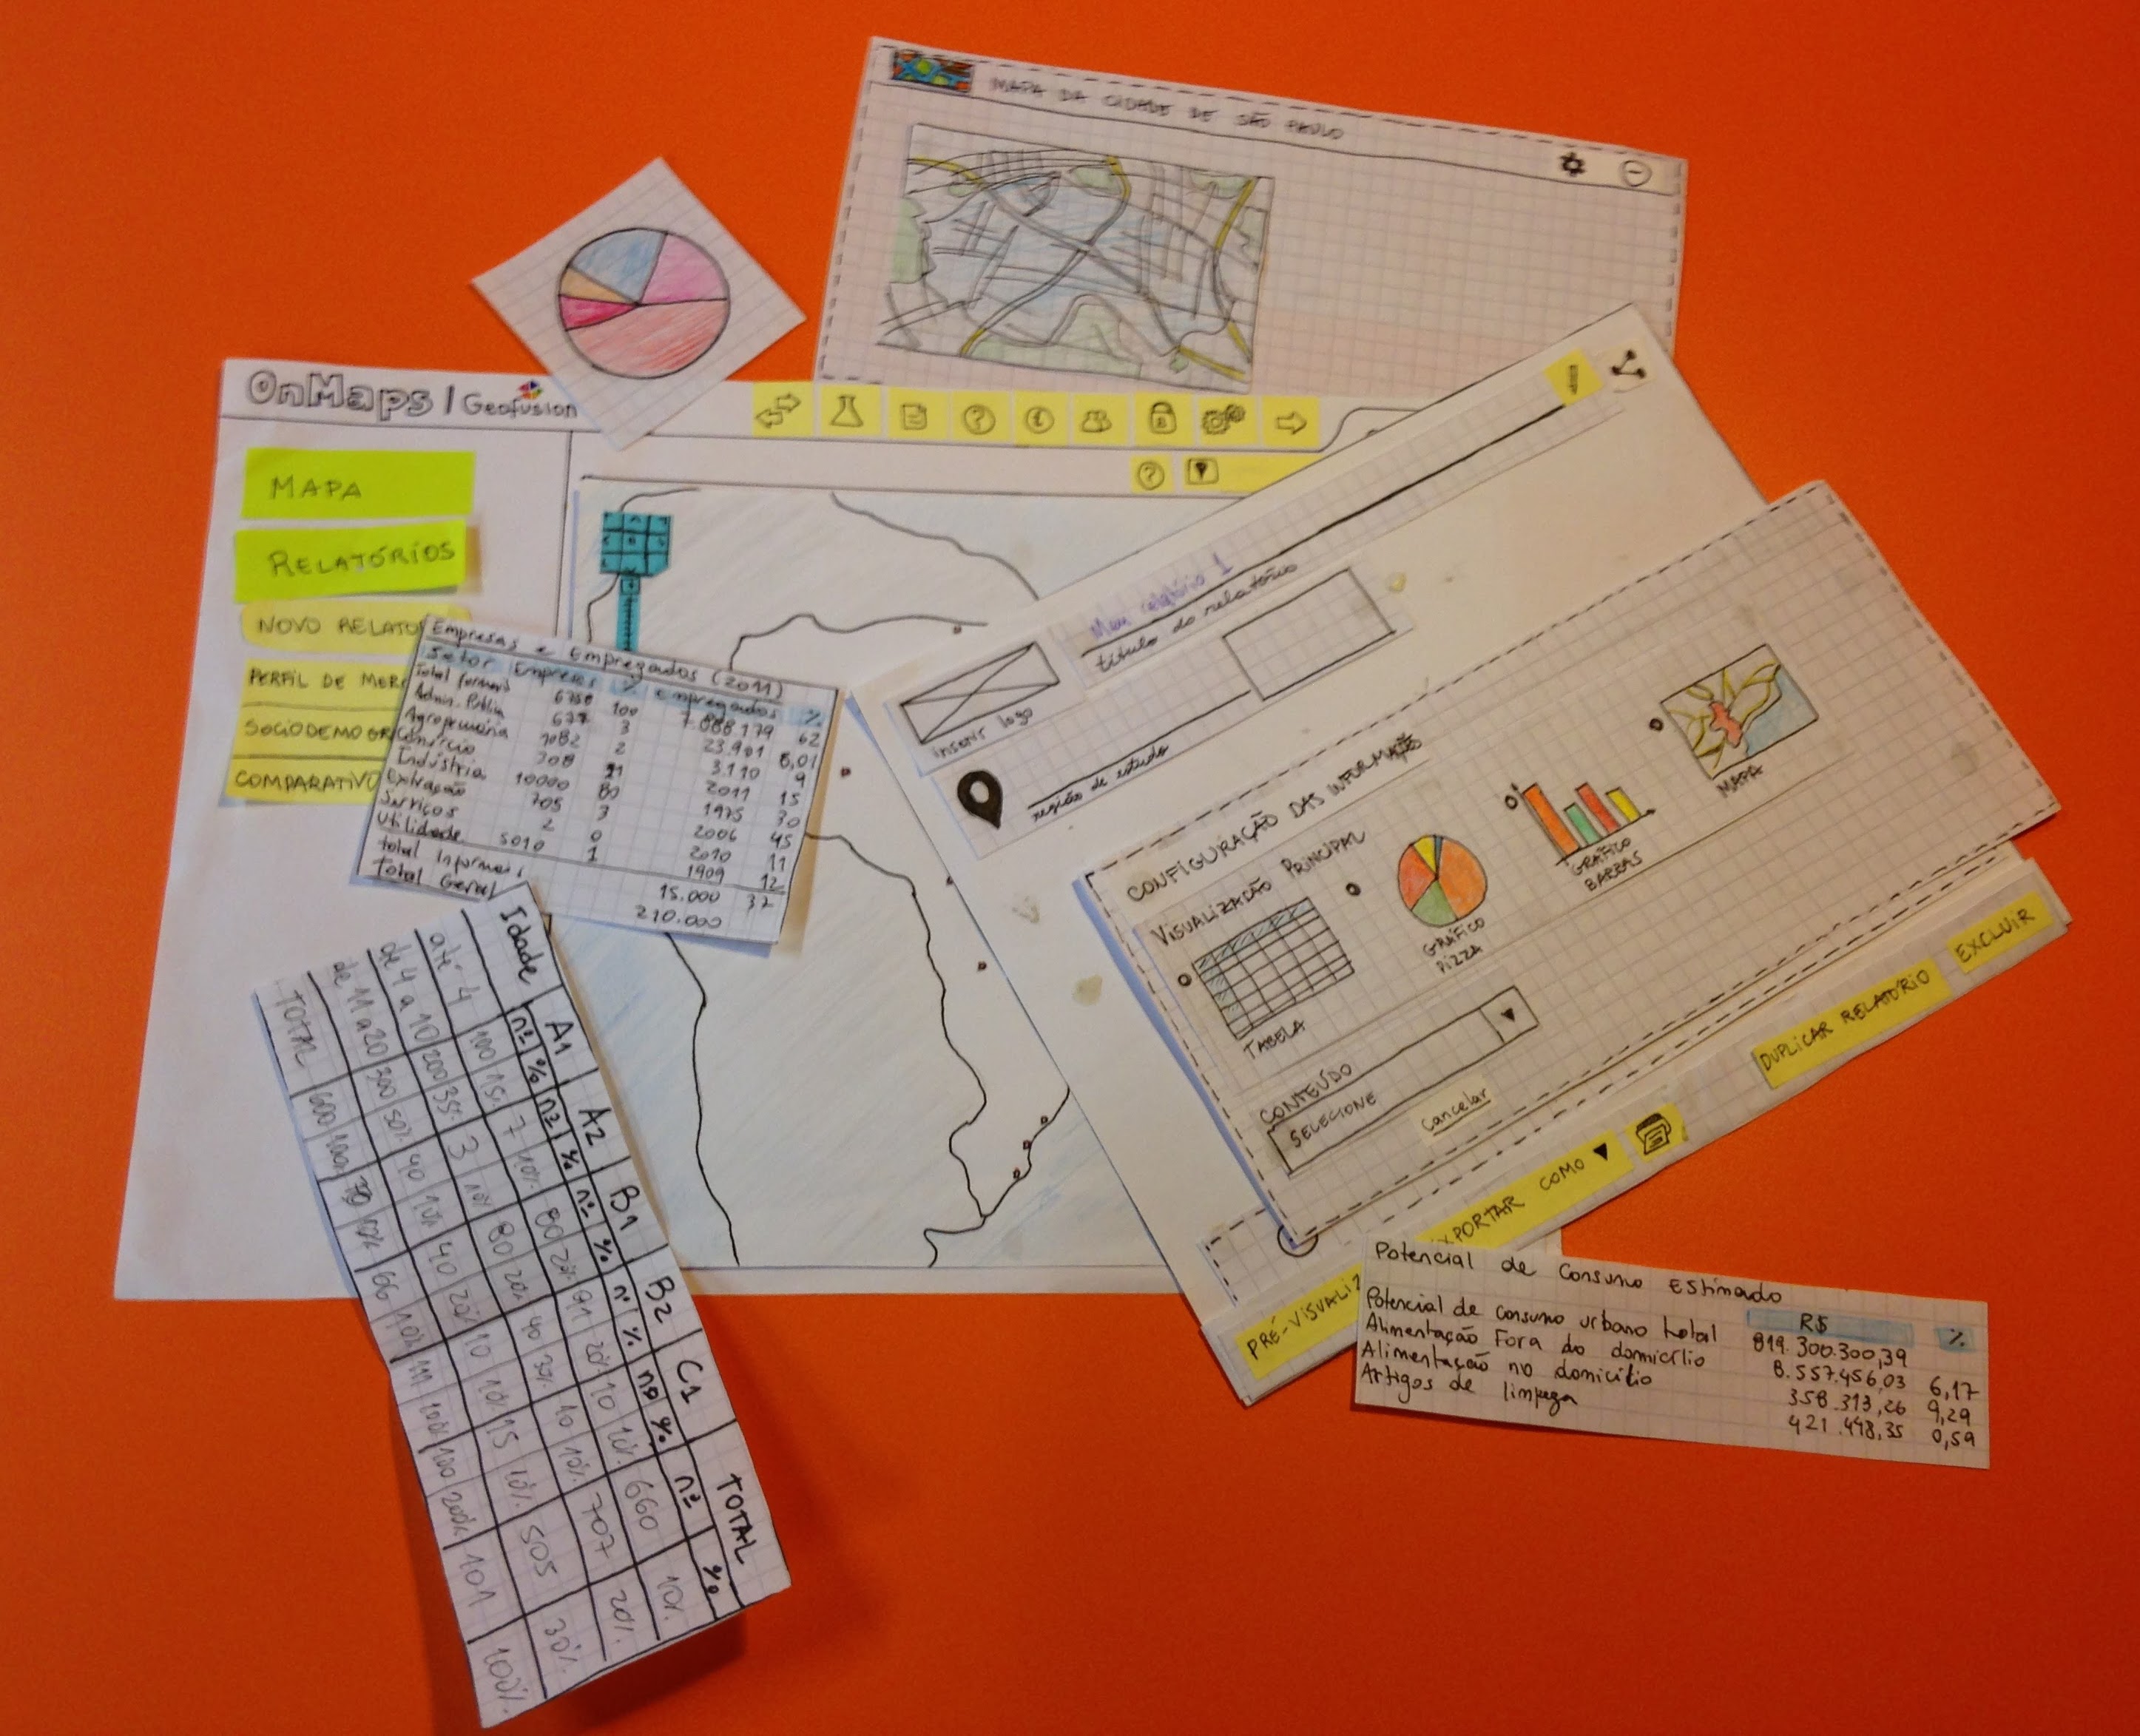 MAPA DA CIDADE DE SÃO PAULO
OnMaps | Geofusion
MAPA
RELATÓRIOS
NOVO RELATO
PERFIL DE MERC
SOCIODEMOGR
COMPARATIVO
Empresas e Empregados (2011)
Setor Empresas % empregados %
Total formais 6750 100 7.088.179 62
Admin. Públia 677 3 23.901 6,01
Agropecuária 1082 2 3.110 9
Comércio 308 21 2011 15
Indústria 10000 80 1975 30
Extração 705 3 2006 45
Serviços 2 0 2010 11
Utilidade 5010 1 1909 12
total Informais 15.000 37
Total Geral 210.000
Idade A1 A2 B1 B2 C1 TOTAL
nº % nº % nº % nº % nº % nº %
até 4 100 15% 7 10% 80 20% 91 20% 10 10% 660 10%
de 4 a 10 200 35% 3 10% 80 20% 40 30% 10 10% 707 20%
de 11 a 20 300 50% 40 10% 40 20% 10 10% 15 10% 505 30%
TOTAL 600 100% 70 100% 66 102% 111 100% 100 200% 101 100%
Meu relatório 1
título do relatório
inserir logo
região de estudo
CONFIGURAÇÃO DAS INFORMAÇÕES
VISUALIZAÇÃO PRINCIPAL
TABELA
GRÁFICO
PIZZA
GRÁFICO
BARRAS
MAPA
CONTEÚDO
SELECIONE
Cancelar
PRÉ-VISUALIZ
EXPORTAR COMO
DUPLICAR RELATÓRIO
EXCLUIR
Potencial de Consumo Estimado
R$ %
Potencial de consumo urbano total 819.300.300,39
Alimentação Fora do domicílio 8.557.456,03 6,17
Alimentação no domicílio 358.313,26 9,29
Artigos de limpeza 421.448,35 0,59